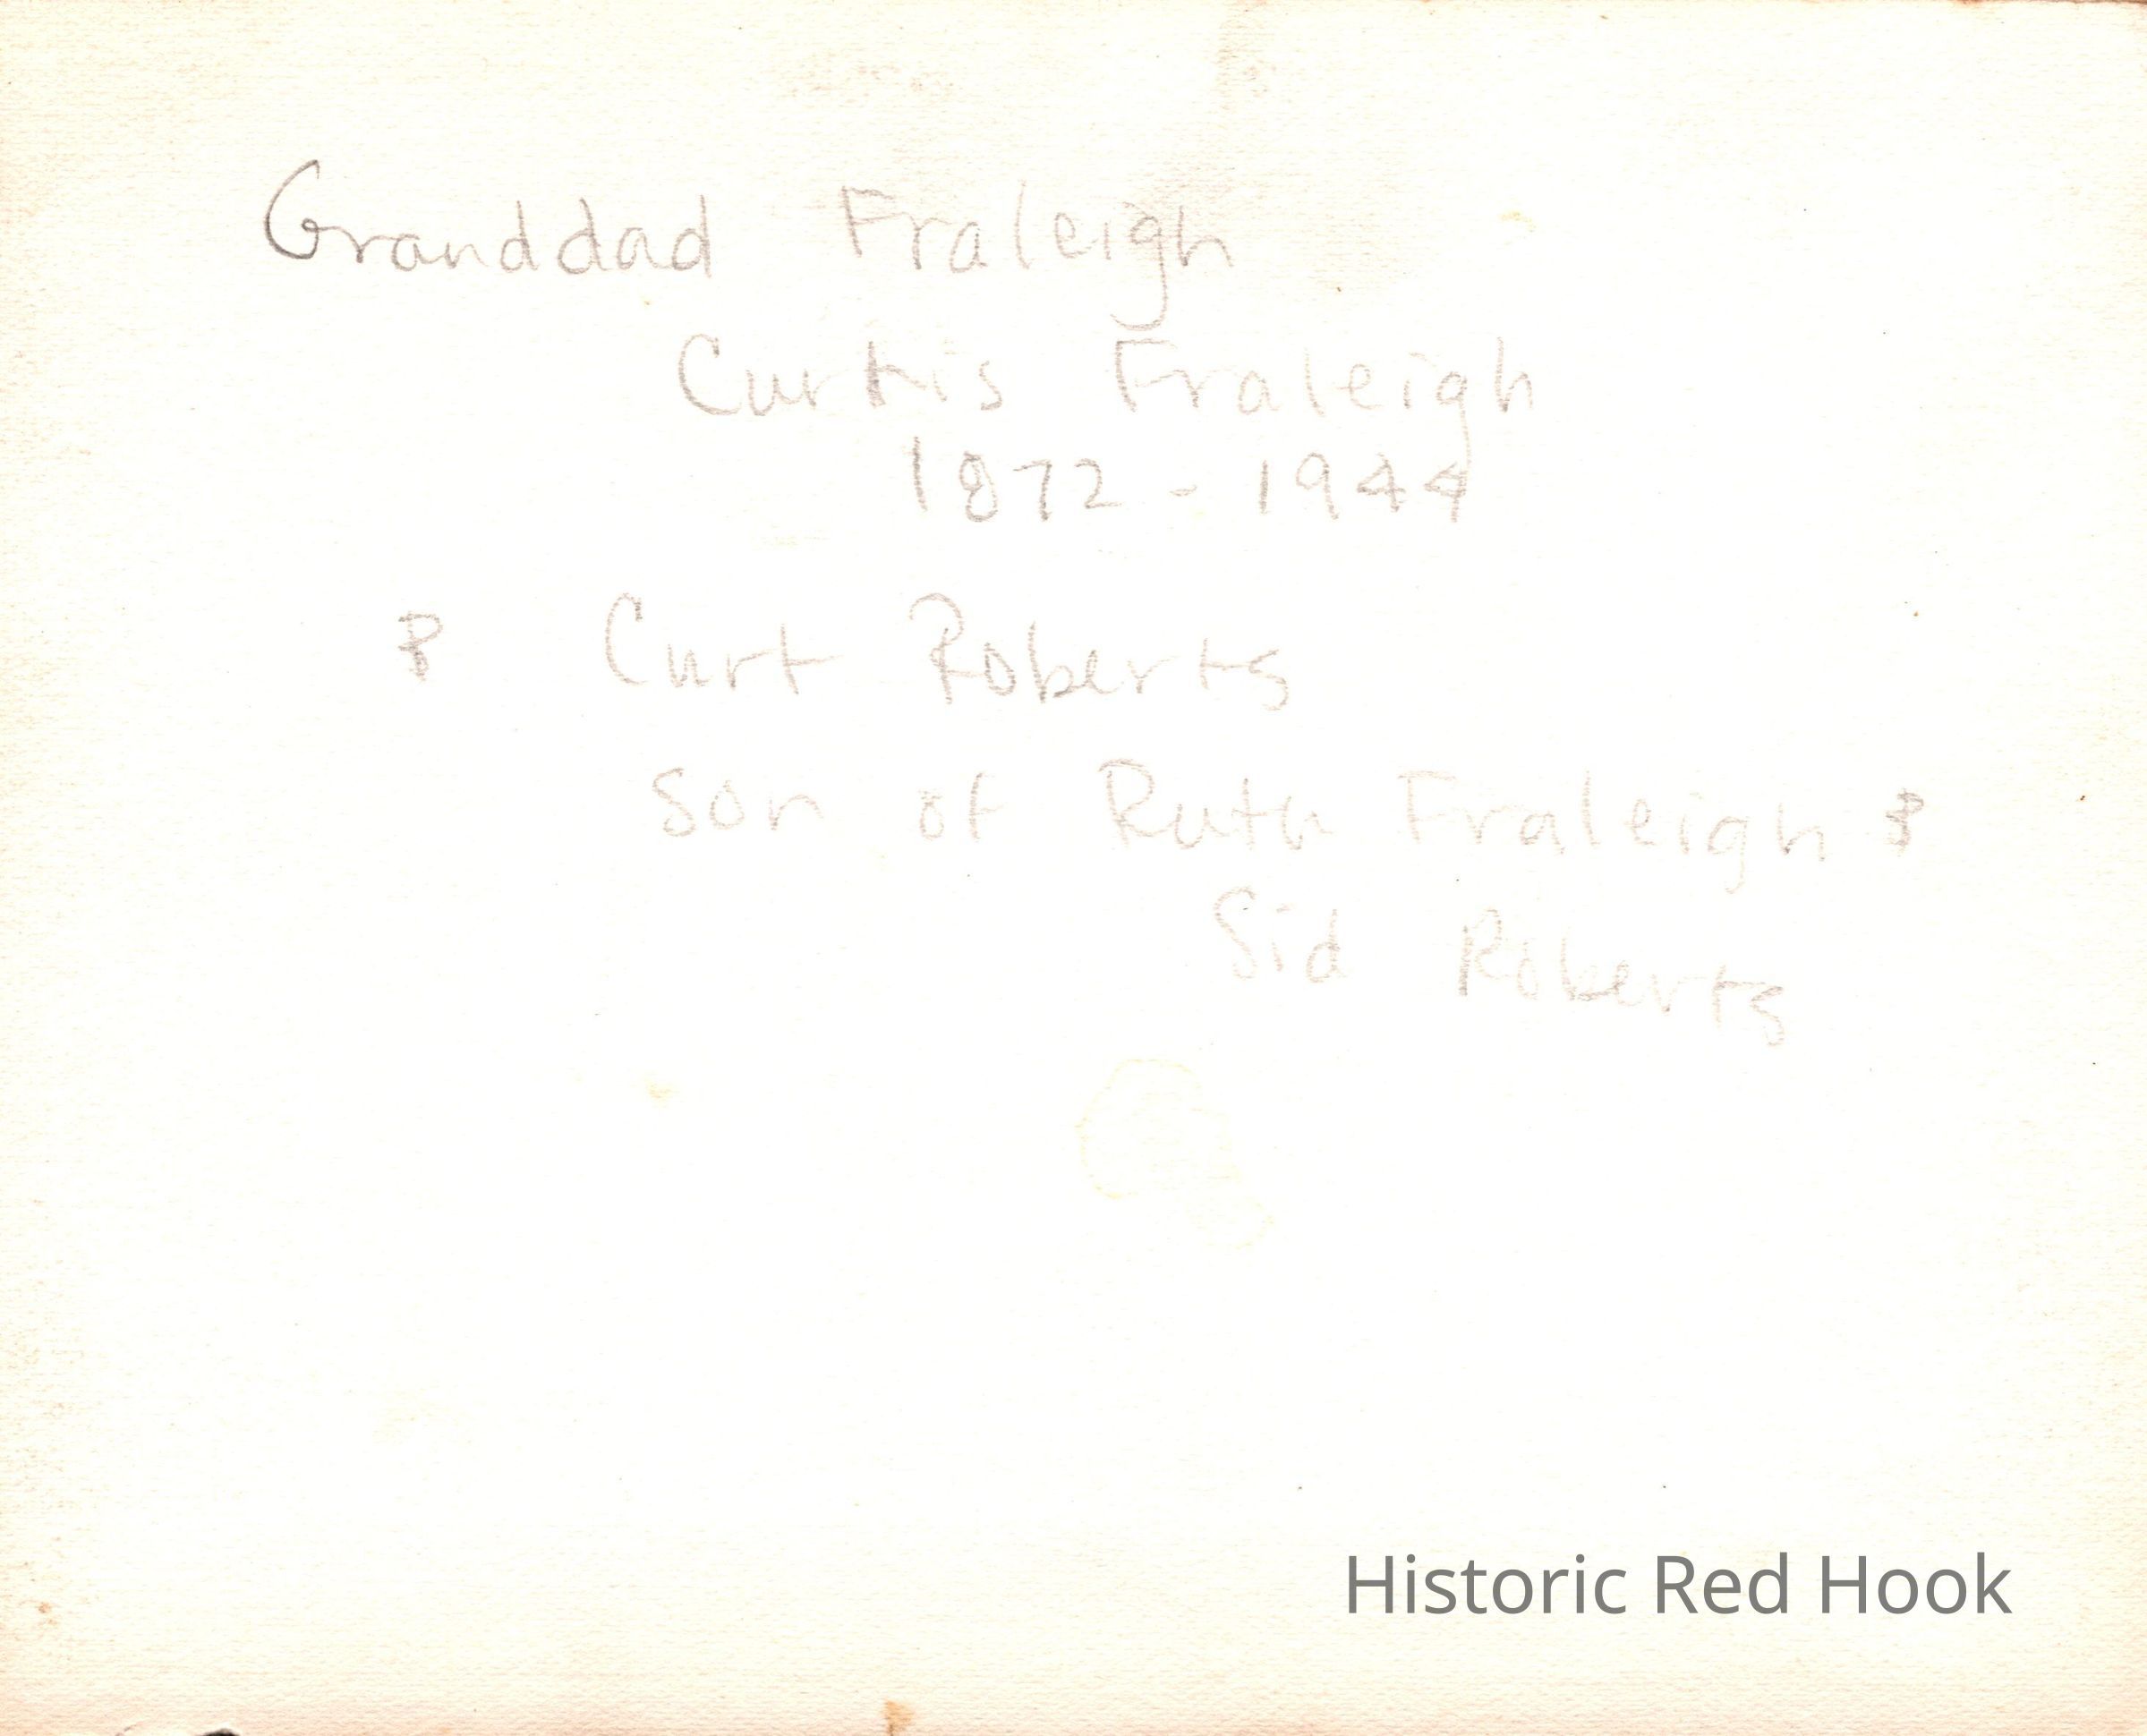 Granddad Fraleigh
Curtis Fraleigh
1872 - 1944
& Curt Roberts
son of Ruth Fraleigh &
Sid Roberts
Historic Red Hook